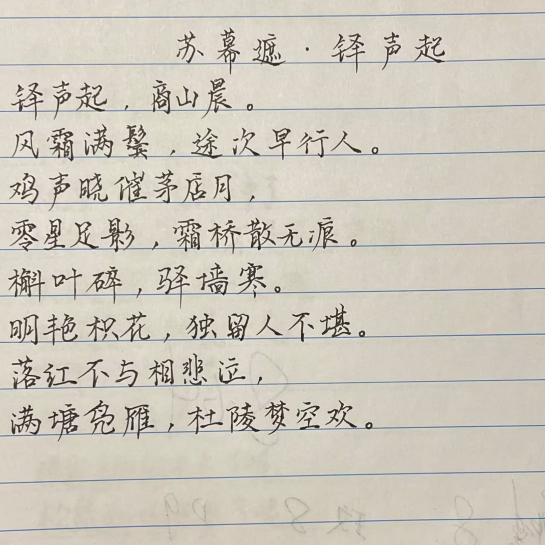 苏幕遮·铎声起
铎声起，商山晨。
风霜满鬓，途次早行人。
鸡声晓催茅店月，
零星足影，霜桥散无痕。
槲叶碎，驿墙寒。
明艳枳花，独留人不堪。
落红不与相悲泣，
满塘凫雁，杜陵梦空欢。